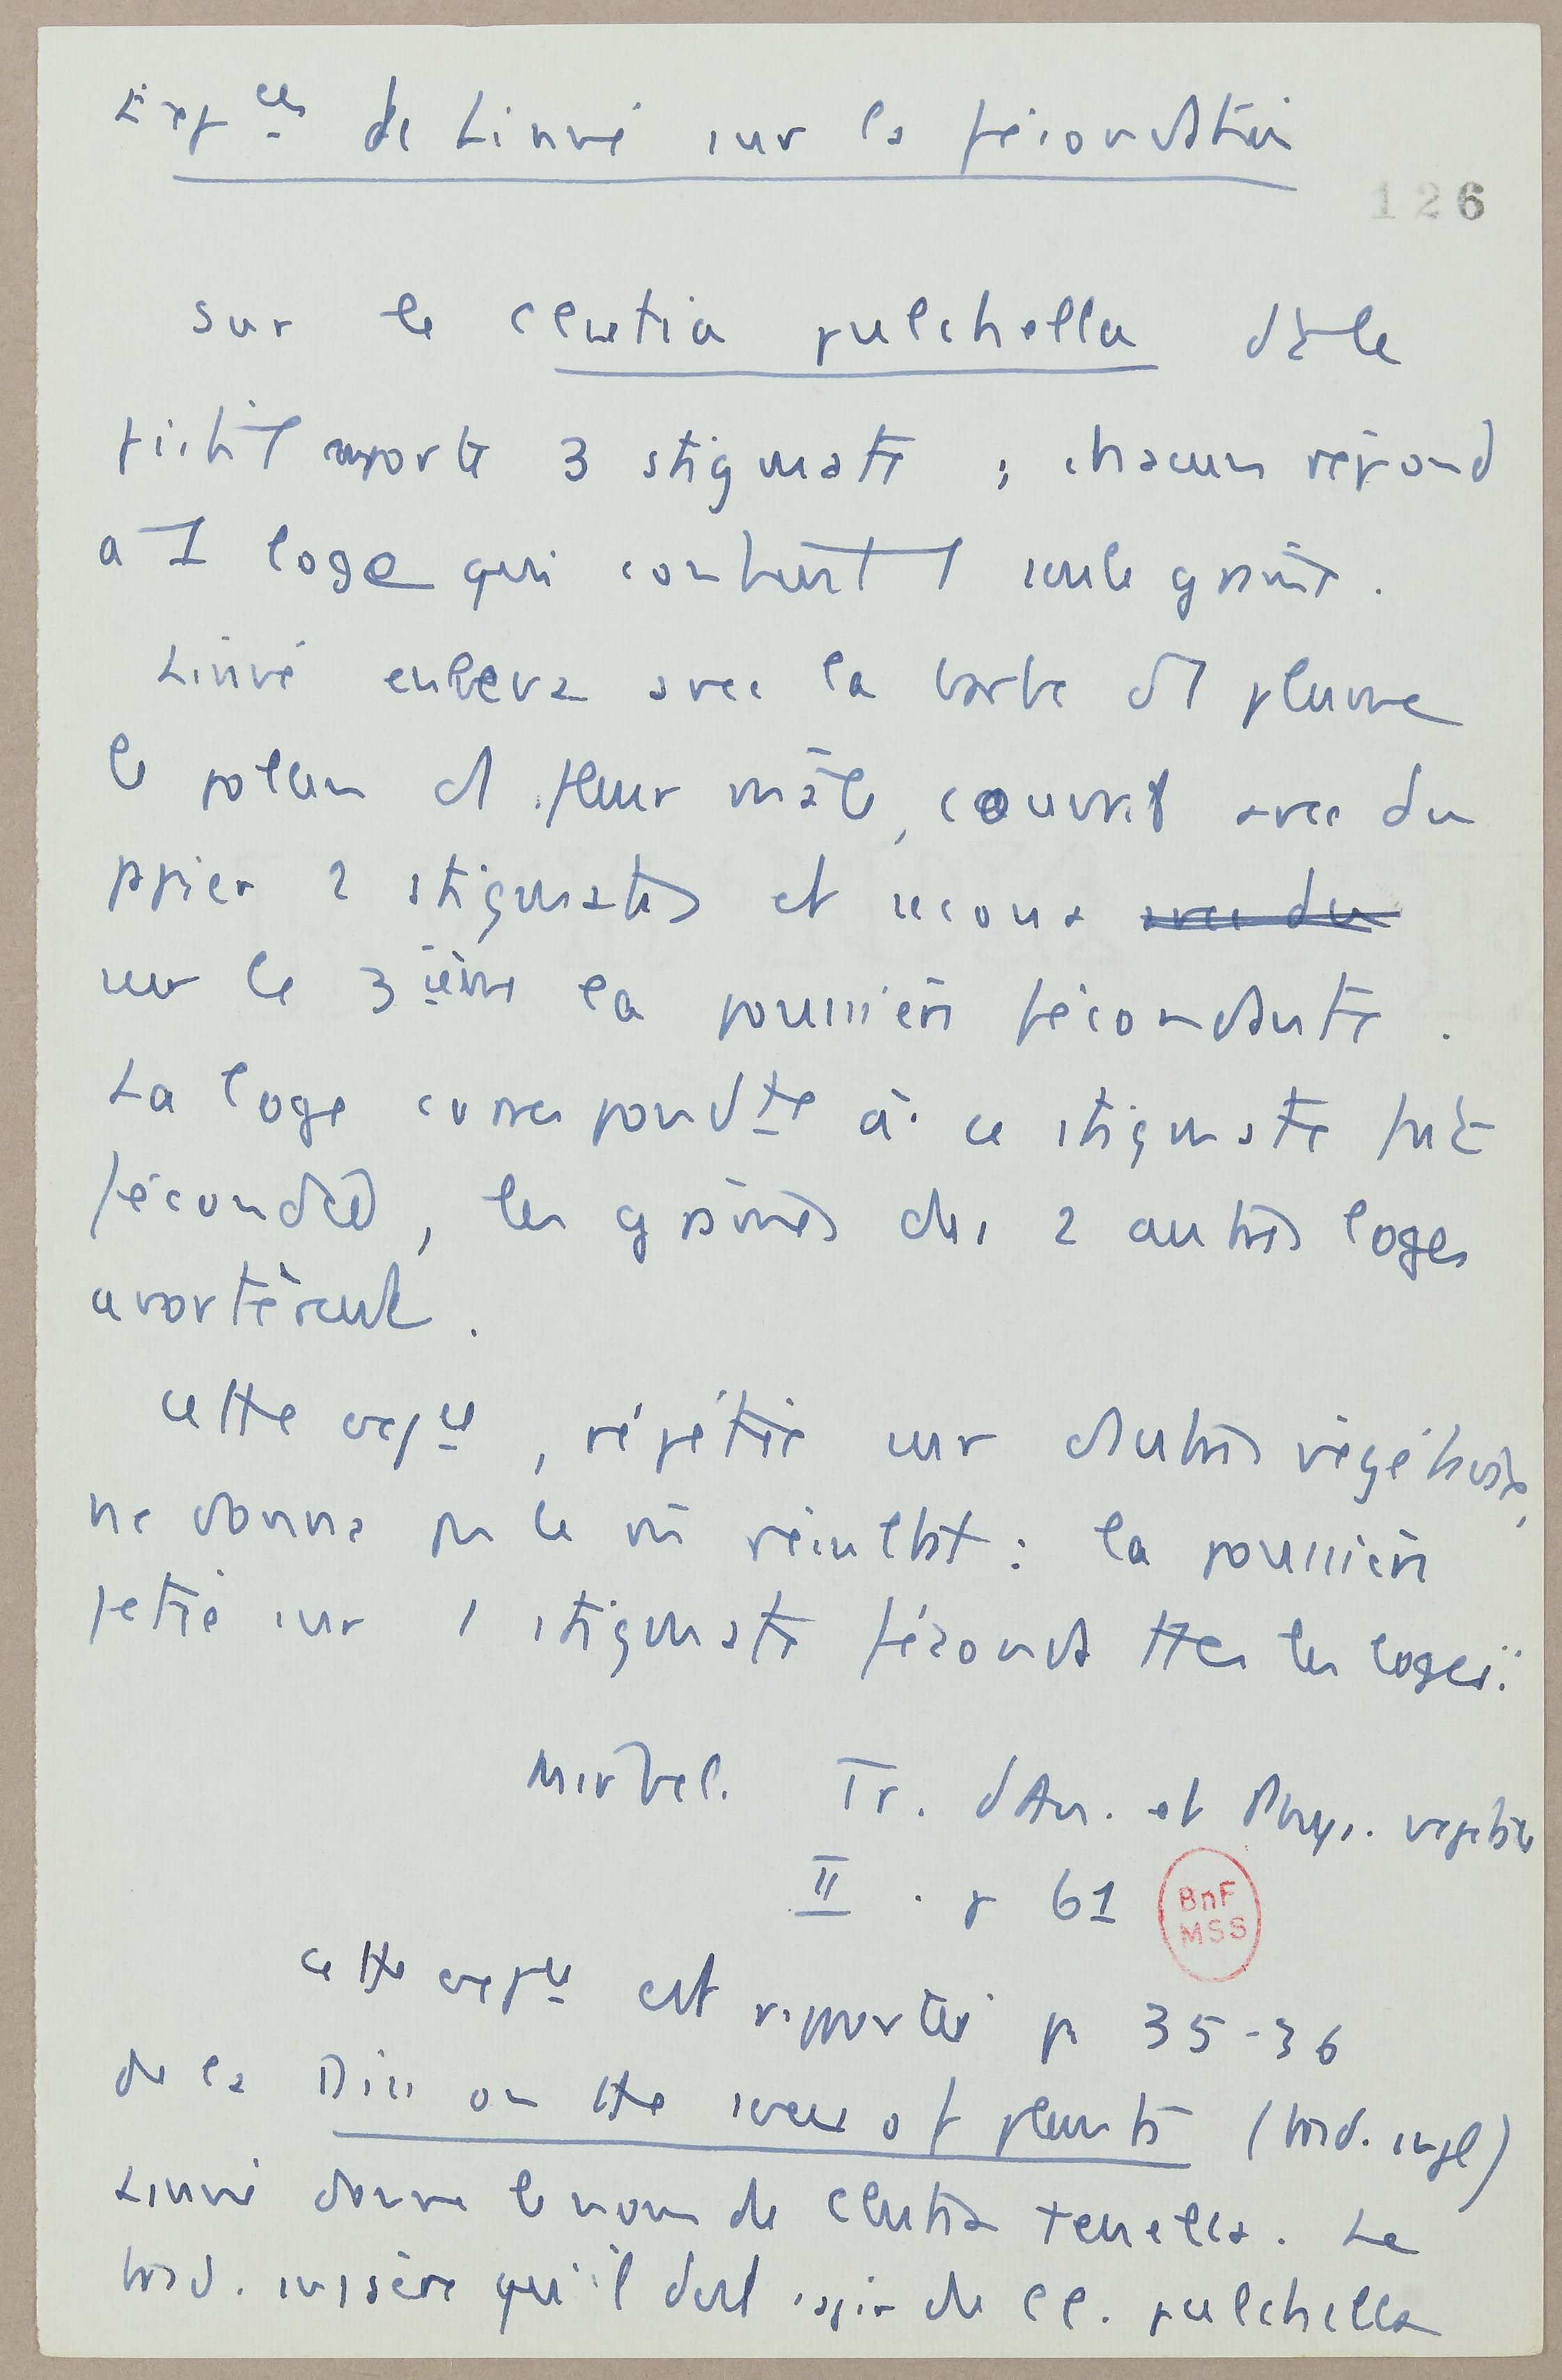 Expces de Linné sur la fécondation
126
sur le clutia pulchella dt le
pistil porte 3 stigmates ; chacun répond
a 1 loge qui contient 1 seule graine.
Linné enleva avec la barbe d1 plume
le pollen d1 fleur mâle, couvrit avec du
papier 2 stigmates et secoua avec du
sur le 3ième la poussière fécondante.
La loge correspondte à ce stigmate fut
fécondée, les graines des 2 autres loges
avortèrent.
Cette expce, répétée sur d'autres végétaux,
ne donna pas le m̄ résultat : la poussière
jetée sur 1 stigmate féconda ttes les loges".
Mirbel. Tr. d'An. et Phys. végétale
II . p 61
BnF
MSS
Cette expce est rapportée p 35-36
de la Diss on the sexes of plants (trad. angl)
Linné donne le nom de Clutia tenella. Le
trad. insère qu'il doit s'agir de Cl. pulchella